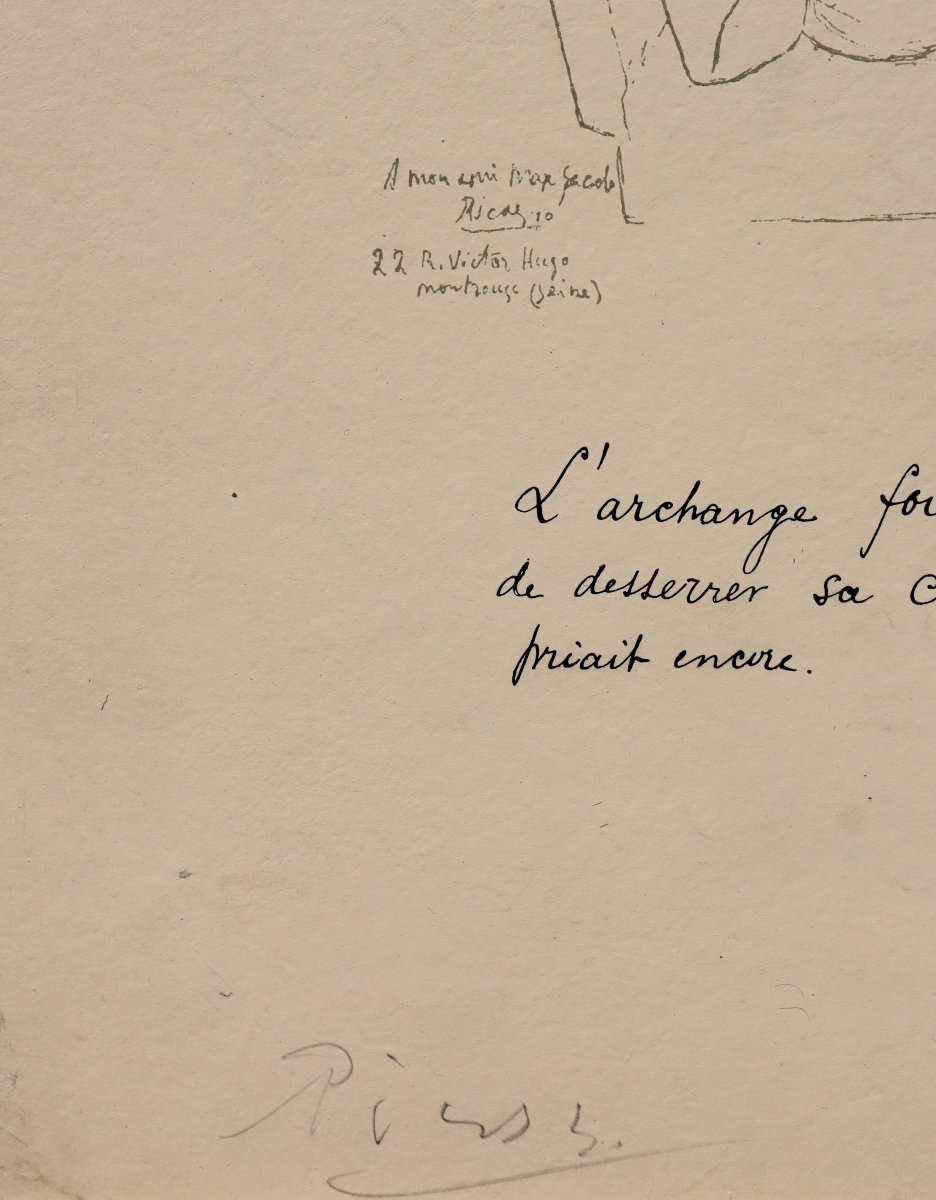 A mon ami Max Jacob
Picasso
22 R. Victor Hugo
montrouge (Seine)
L'archange
de desserrer sa
priait encore.
Picasso